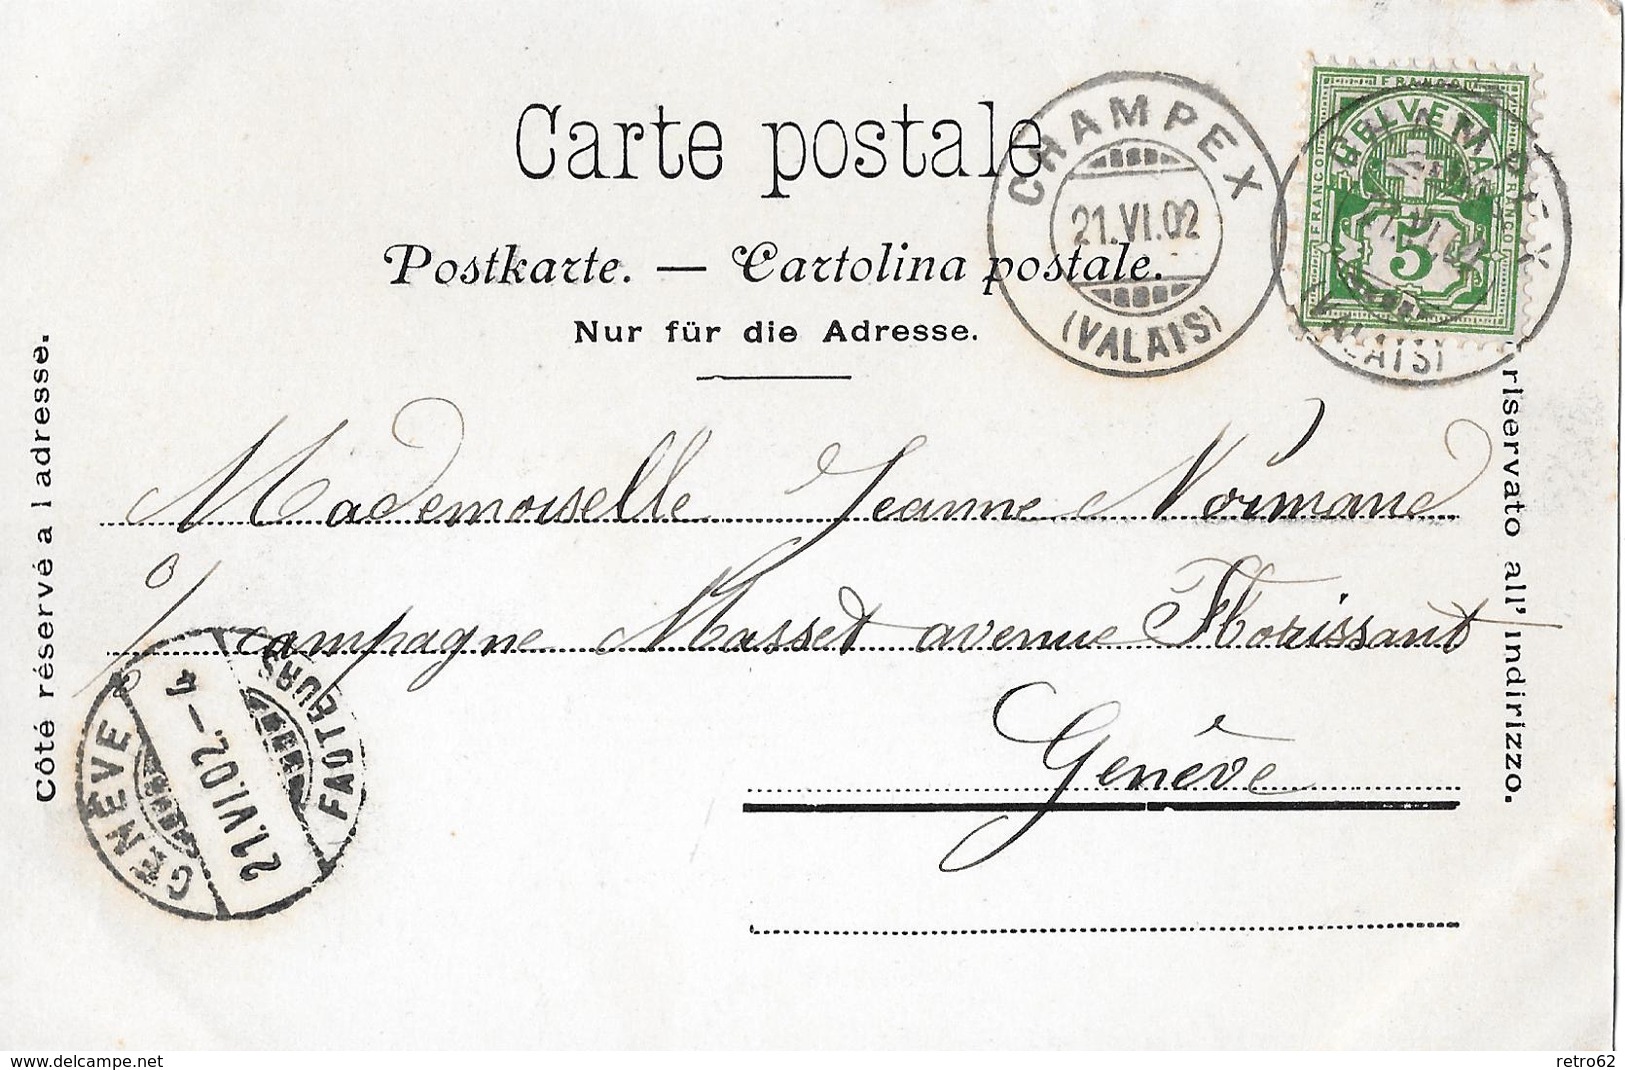 Carte postale
Postkarte. — Cartolina postale.
Nur für die Adresse.
CHAMPEX
21.VI.02
(VALAIS)
FRANCO
HELVETIA
FRANCO
FRANCO
5
CHAMPEX
(VALAIS)
Côté réservé a l adresse.
riservato all' indirizzo.
Mademoiselle Jeanne Normand
c/ campagne Masset avenue Florissant
Genève
GENÈVE
21.VI.02.–
FACTEURS
delcampe.net
retro62